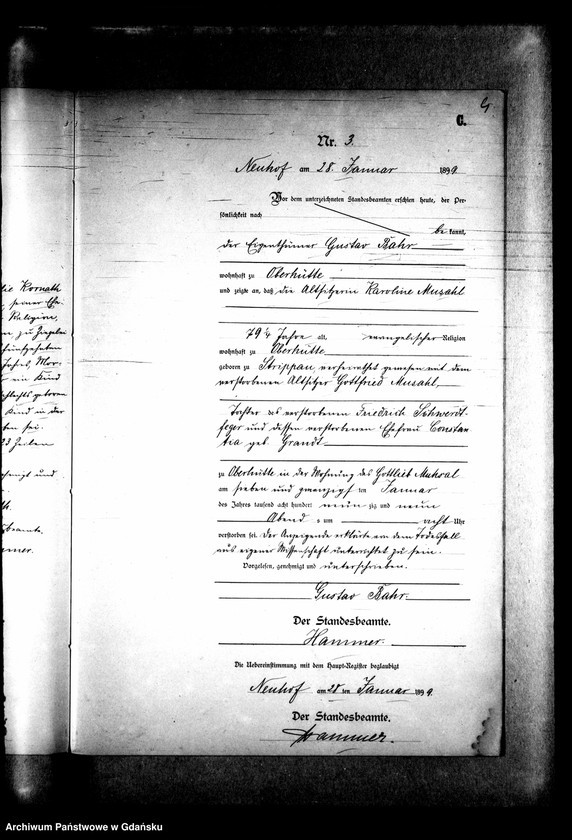 4
C.
Nr. 3.
Neuhof am 28. Januar 1899
Vor dem unterzeichneten Standesbeamten erschien heute, der Per-
sönlichkeit nach
be kannt,
der Eigenthümer Gustav Bahr
wohnhaft zu Oberhütte
und zeigte an, daß die Altsitzerin Karoline Musahl
79 1/4 Jahre alt, evangelischer Religion
wohnhaft zu Oberhütte
geboren zu Strippau, verheirathet gewesen mit dem
verstorbenen Altsitzer Gottfried Musahl,
Tochter des verstorbenen Friedrich Schwerdt-
feger und dessen verstorbenen Ehefrau Constan
tia geb. Grandt
zu Oberhütte in der Wohnung des Gottlieb
am sieben und zwanzigsten Januar
des Jahres tausend acht hundert neun zig und neun
Abend s um acht Uhr
verstorben sei. Der Anzeigende erklärte von dem Todesfall
aus eigener Wissenschaft unterrichtet zu sein.
Vorgelesen, genehmigt und unterschrieben.
Gustav Bahr.
Der Standesbeamte.
Hammer.
Die Uebereinstimmung mit dem Haupt-Register beglaubigt
Neuhof am 28 ten Januar 1899.
Der Standesbeamte.
Hammer.
Kornath
seiner Ehe-
Religion,
zu
Mor-
ein Kind
geboren
Kind in der
sei.
23 Zeilen
und
beamte.
Archiwum Państwowe w Gdańsku